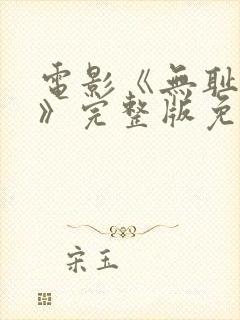 電影《無耻
》完整版免
宋玉